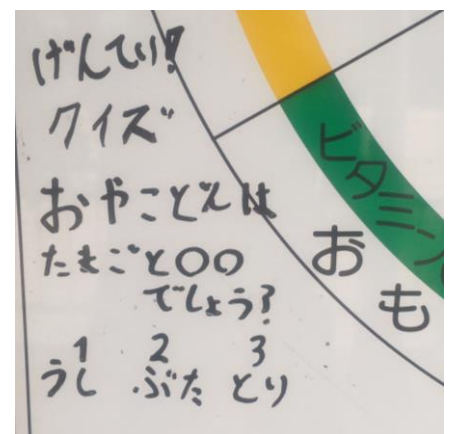 げんてい!
クイズ
おやこどんは
たまごと〇〇
でしょう?
1 2 3
うし ぶた とり
ビタミン
おも